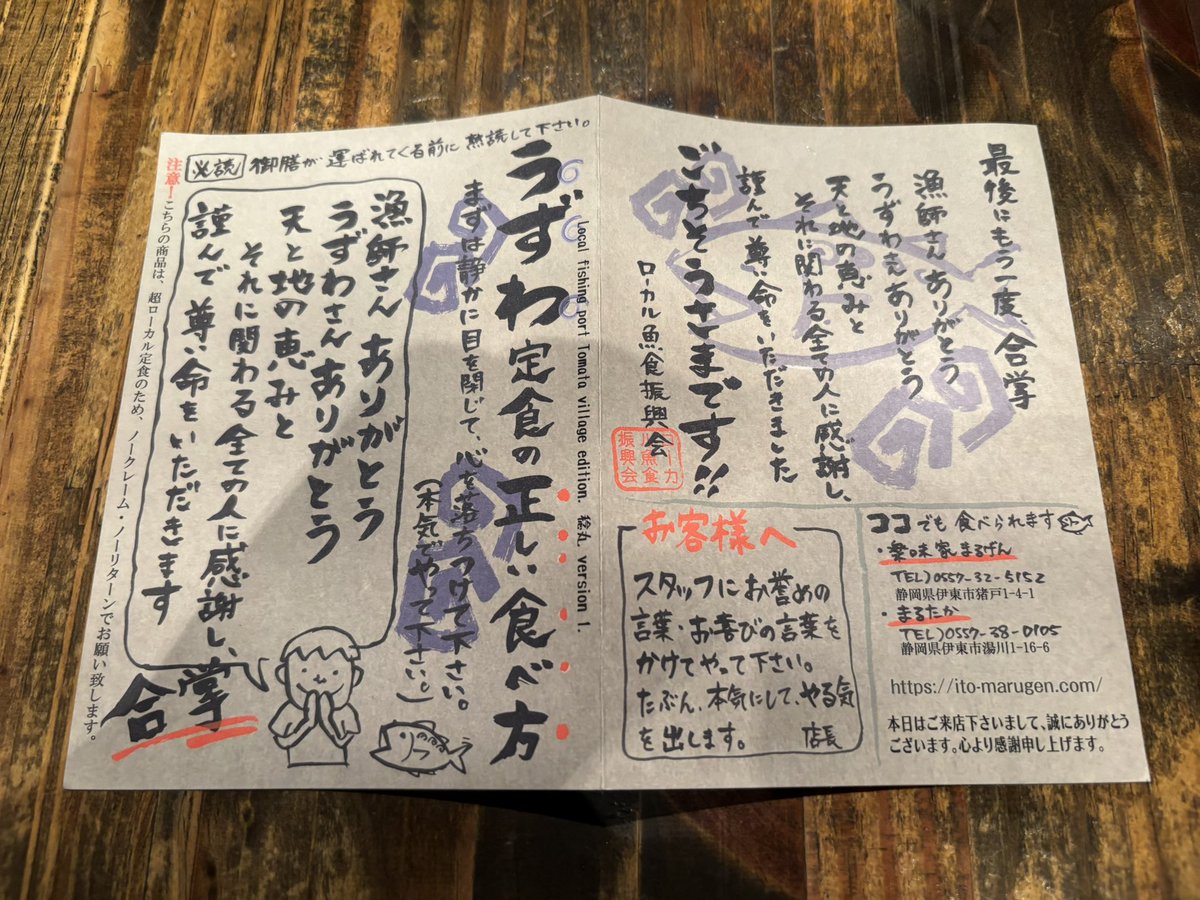 最後にもう一度、合掌
漁師さんありがとう
うずわさんありがとう
天と地の恵みと
それに関わる全ての人に感謝し、
謹んで尊い命をいただきました
ごちそうさまです!!
ローカル魚食振興会
ローカル
魚食
振興会
お客様へ
スタッフにお誉めの
言葉・お喜びの言葉を
かけてやって下さい。
たぶん、本気にして、やる気
を出します。 店長
ココでも食べられます
・楽味家まるげん
TEL)0557-32-5152
静岡県伊東市猪戸1-4-1
・まるたか
TEL)0557-38-0105
静岡県伊東市湯川1-16-6
https://ito-marugen.com/
本日はご来店下さいまして、誠にありがとう
ございます。心より感謝申し上げます。
必読 御膳が運ばれてくる前に熟読して下さい。
Local fishing port Tomato village edition. 稔丸 version 1.
うずわ定食の正しい食べ方
まずは静かに目を閉じて、心を落ちつけて下さい。
(本気でやって下さい。)
漁師さんありがとう
うずわさんありがとう
天と地の恵みと
それに関わる全ての人に感謝し、
謹んで尊い命をいただきます
合掌
注意!こちらの商品は、超ローカル定食のため、ノークレーム・ノーリターンでお願い致します。